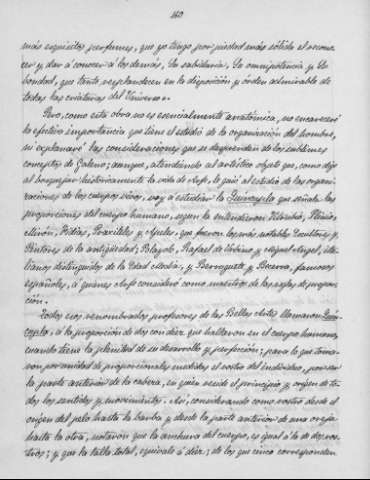 160
más esquisitos perfumes, que yo tengo por piedad más sólida el recono-
cer y dar á conocer á los demás, la sabiduría, la omnipotencia y la
bondad, que tanto resplandecen en la disposición y órden admirable de
todas las criaturas del Universo".
Pero, como esta obra no es esencialmente anatómica, no encareceré
la efectiva importancia que tiene el estudio de la organización del hombre,
ni explanaré las consideraciones que se desprenden de los sublimes
conceptos de Galeno; aunque, atendiendo al artístico objeto que, como dije
al bosquejar históricamente la vida de Arfe, le guió al estudio de las organi-
zaciones de los cuerpos vivos, voy á estudiar la que señala las
proporciones del cuerpo humano, según la entendieron Plinio,
Mirón, Fidias, Praxiteles y Apeles, que fueron los más notables Escultores y
Pintores de la antigüedad; Rafael de Urbino y Miguel Angel, ita-
lianos distinguidos de la Edad Media, y Berruguete y Becerra, famosos
españoles, á quienes Arfe consideró como maestros de las reglas de propor-
ción.
Todos esos renombrados profesores de las Bellas Artes llamaron
á la proporción de dos con diez que hallaron en el cuerpo humano,
cuando tiene la plenitud de su desarrollo y perfección; para lo que toma-
ron por unidad de proporcionales medidas el rostro del individuo, por ser
la parte anterior de la cabeza, en quien reside el principio y origen de to-
dos los sentidos y movimientos. Así, considerando como rostro desde el
origen del pelo hasta la barba y desde la parte anterior de una oreja
hasta la otra, notaron que la anchura del cuerpo, es igual á la de dos ros-
tros; y que la talla total, equivale á diez; de los que cinco corresponden